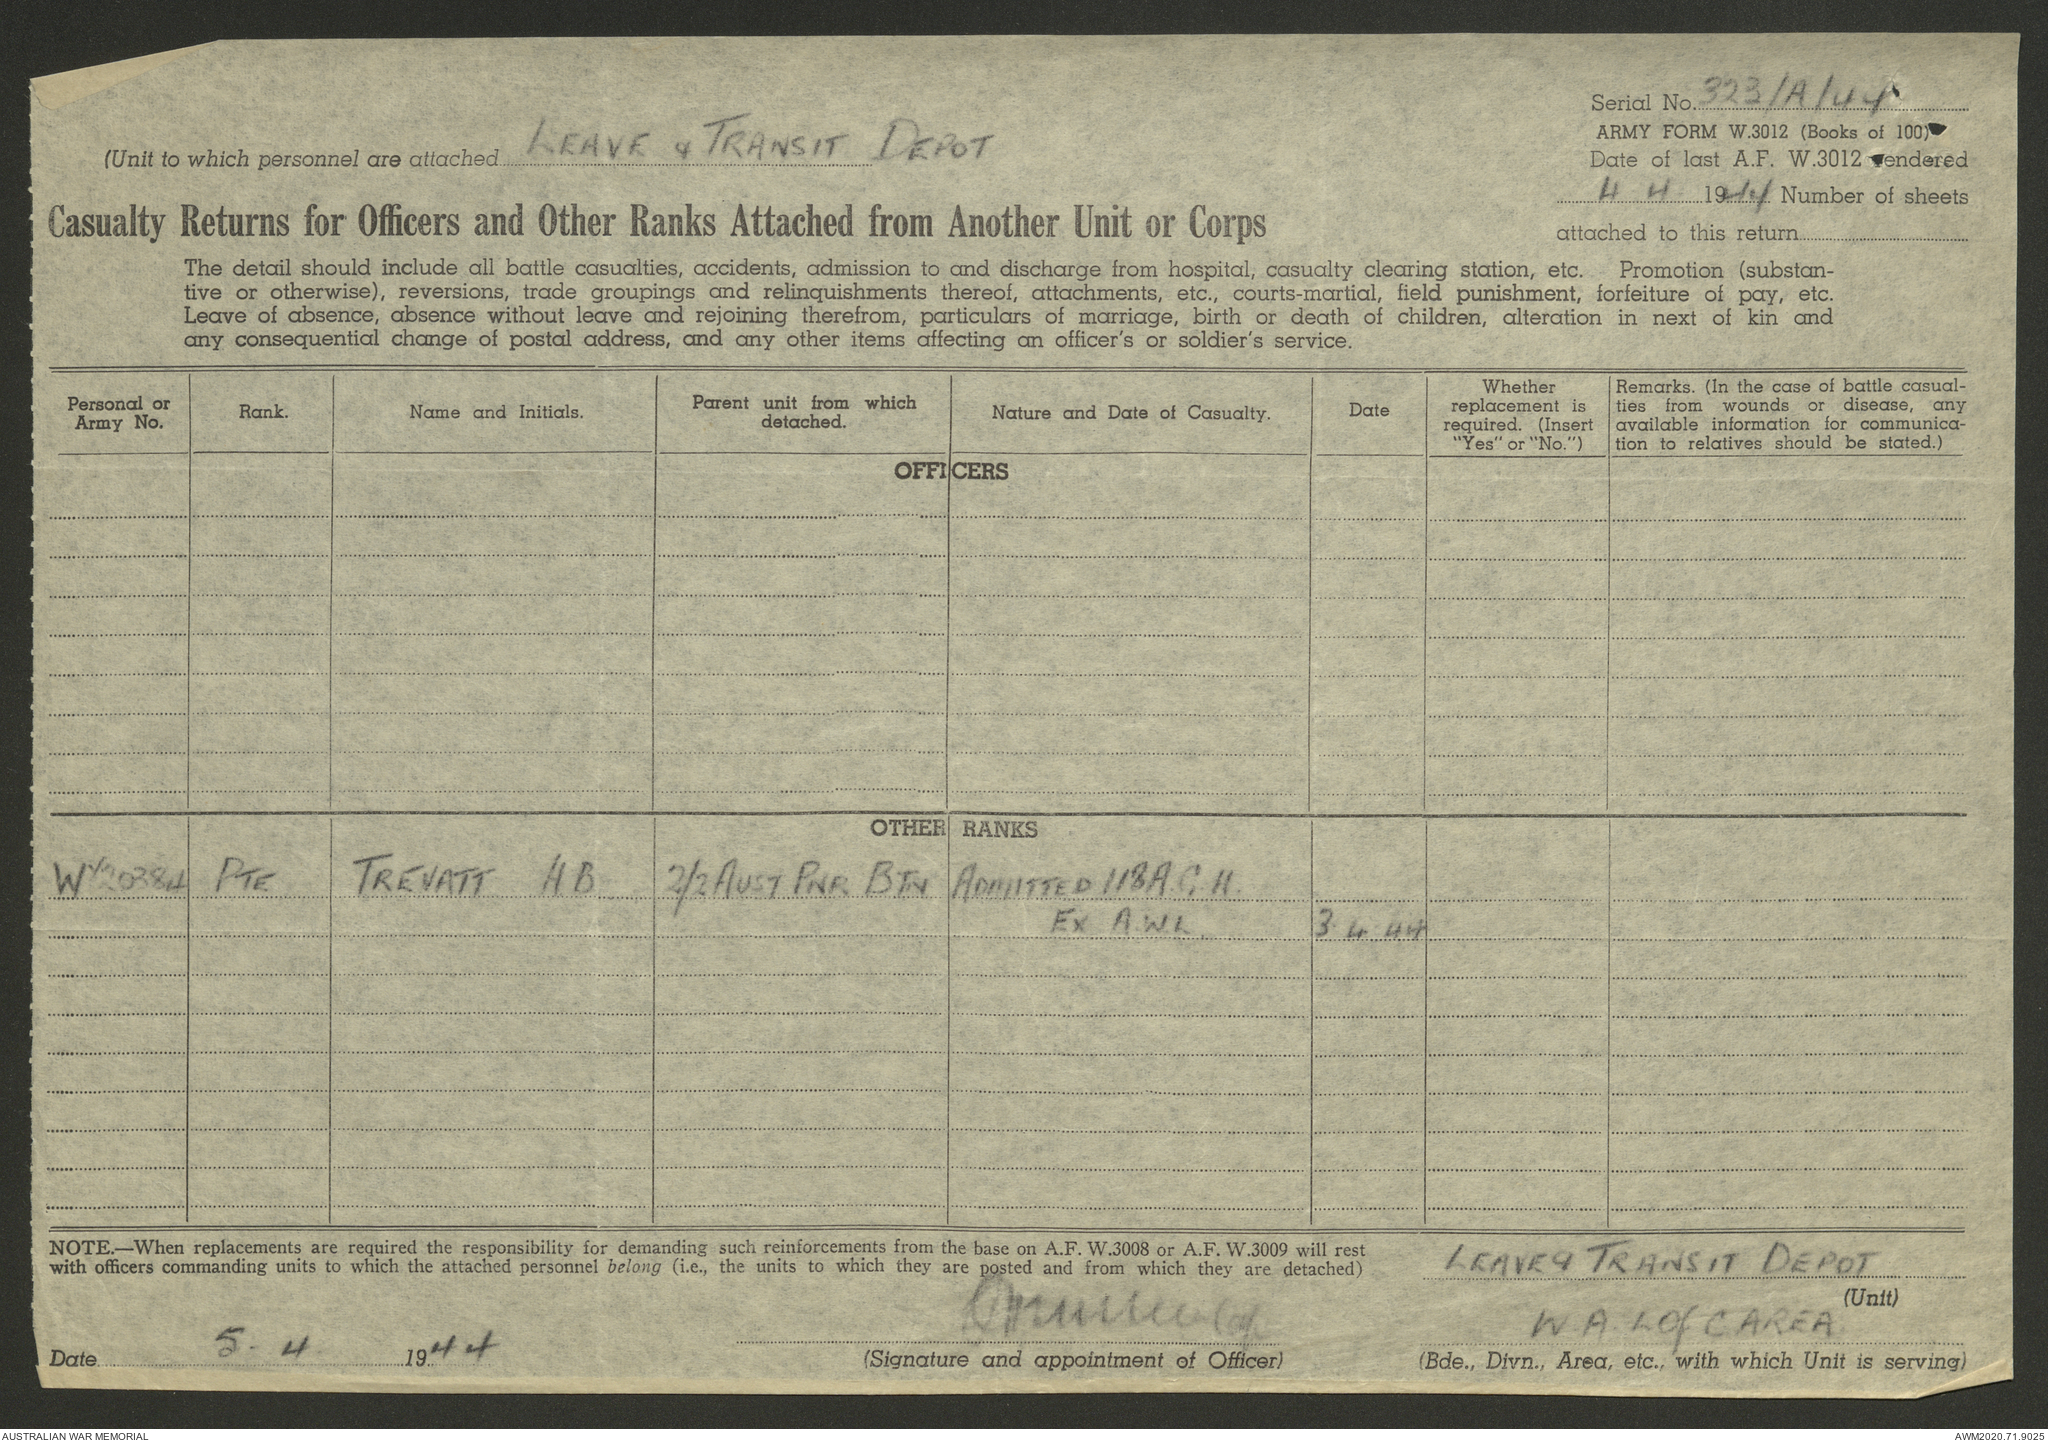 Serial No. 323/A/44
ARMY FORM W.3012 (Books of 100)
(Unit to which personnel are attached LEAVE & TRANSIT DEPOT
Date of last A.F. W.3012 rendered
4 4 1944 Number of sheets
attached to this return
Casualty Returns for Officers and Other Ranks Attached from Another Unit or Corps
The detail should include all battle casualties, accidents, admission to and discharge from hospital, casualty clearing station, etc. Promotion (substan-
tive or otherwise), reversions, trade groupings and relinquishments thereof, attachments, etc., courts-martial, field punishment, forfeiture of pay, etc.
Leave of absence, absence without leave and rejoining therefrom, particulars of marriage, birth or death of children, alteration in next of kin and
any consequential change of postal address, and any other items affecting an officer's or soldier's service.
Personal or
Army No.
Rank.
Name and Initials.
Parent unit from which
detached.
Nature and Date of Casualty.
Date
Whether
replacement is
required. (Insert
"Yes" or "No.")
Remarks. (In the case of battle casual-
ties from wounds or disease, any
available information for communica-
tion to relatives should be stated.)
OFFICERS
OTHER RANKS
PTE TREVATT H B 2/2 AUST PNR BTN ADMITTED 118 A.G.H.
EX A.W.L. 3 4 44
NOTE.—When replacements are required the responsibility for demanding such reinforcements from the base on A.F. W.3008 or A.F. W.3009 will rest
with officers commanding units to which the attached personnel belong (i.e., the units to which they are posted and from which they are detached)
LEAVE & TRANSIT DEPOT
(Unit)
W.A. L Of C AREA
Date 5. 4. 1944
(Signature and appointment of Officer)
(Bde., Divn., Area, etc., with which Unit is serving)
AUSTRALIAN WAR MEMORIAL
AWM2020.71.9025